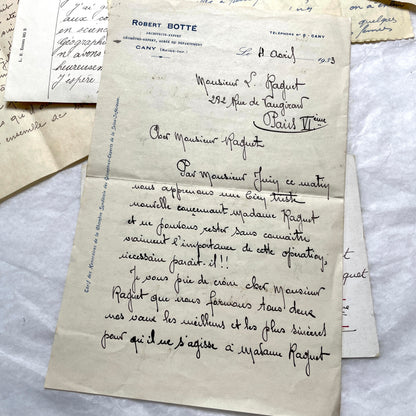 ROBERT BOTTÉ
ARCHITECTE-EXPERT
GÉOMÈTRE-EXPERT, AGRÉÉ DU DÉPARTEMENT
CANY (Seine-Inf.)
TÉLÉPHONE Nº 5 - CANY
Le 11 Avril 1933
Monsieur L. Raguet
282 Rue de Vaugirard
Paris VIème
Cher Monsieur Raguet
Par Monsieur Juin ce matin
nous apprenons une bien triste
nouvelle concernant Madame Raguet
et ne pouvons rester sans connaître
vraiment l'importance de cette opération,
nécessaire paraît-il !!
Je vous prie de croire cher Monsieur
Raguet que nous formons tous deux
nos vœux les meilleurs et les plus sincères
pour qu'il ne s'agisse à Madame Raguet
Tarif des Honoraires de la Chambre Syndicale des Géomètres-Experts de la Seine-Inférieure
quelques
J'espère
heureuse
géographie